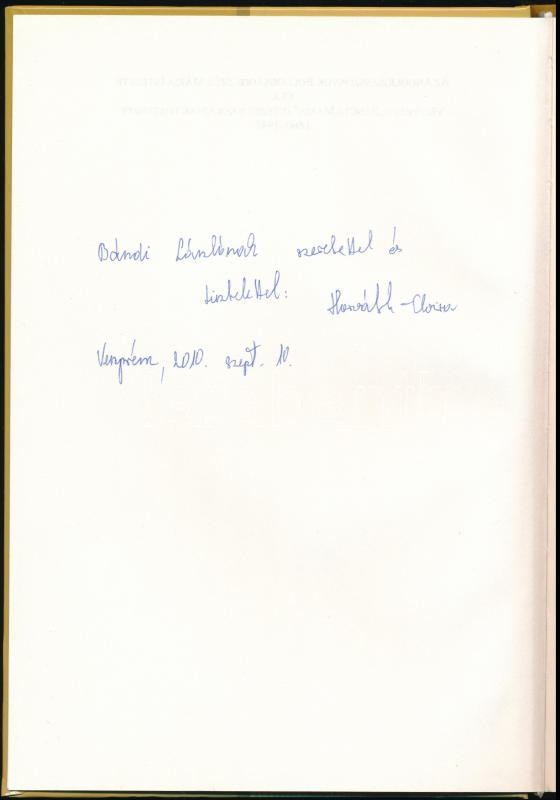 Bándi Lászlónak szeretettel és
tisztelettel: Horváth
Veszprém, 2010. szept. 10.